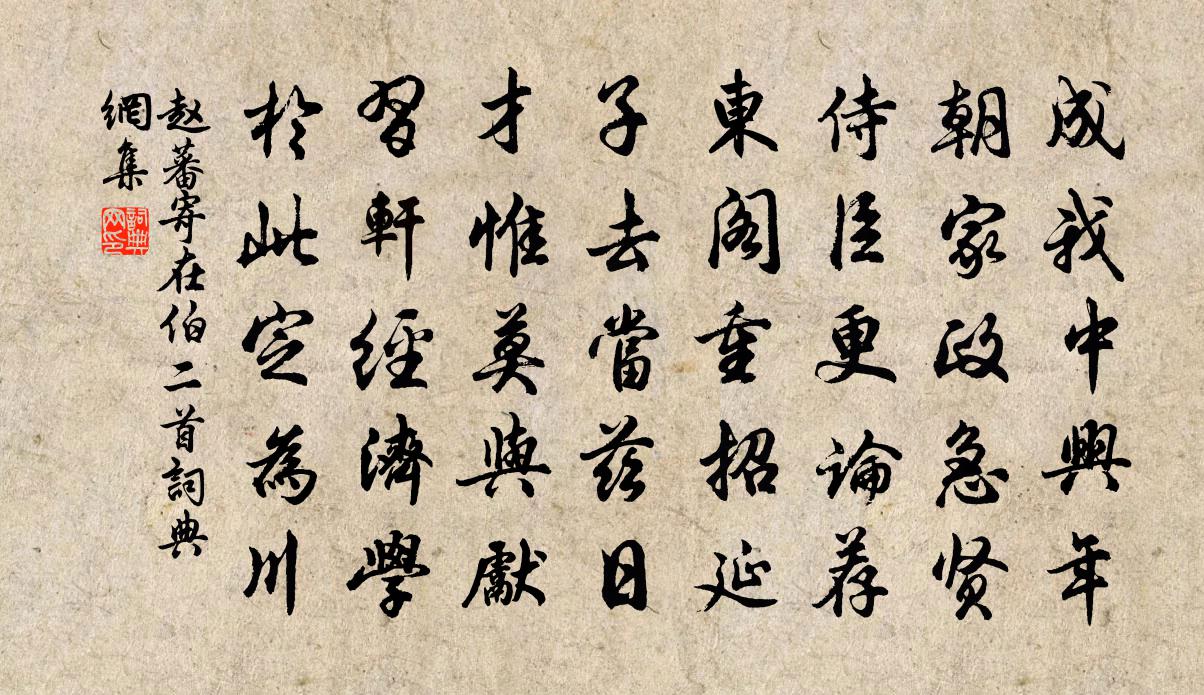 成我中興年
朝家政急贤
侍臣更論荐
東阁重招延
子去當茲日
才惟莫與獻
習軒經濟學
於此定為川
赵蕃寄在伯二首詞典
網集
詞典
网印